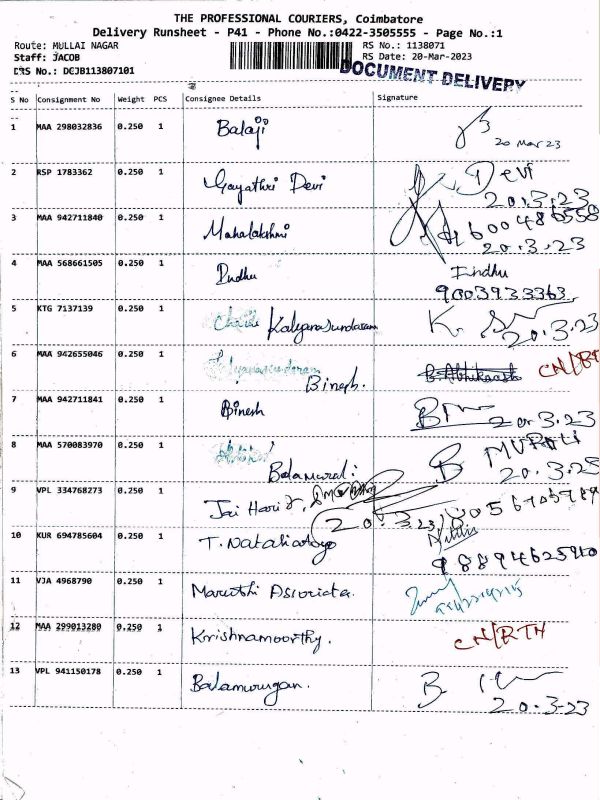 THE PROFESSIONAL COURIERS, Coimbatore
Delivery Runsheet - P41 - Phone No.:0422-3505555 - Page No.:1
Route: MULLAI NAGAR RS No.: 1138071
Staff: JACOB RS Date: 20-Mar-2023
DRS No.: DCJB113807101 DOCUMENT DELIVERY
S No Consignment No Weight PCS Consignee Details Signature
1 MAA 298032836 0.250 1 Balaji 20 Mar 23
2 RSP 1783362 0.250 1 Gayathri Devi Devi
20.3.23
3 MAA 942711840 0.250 1 Mahalakshmi
20.3.23
4 MAA 568661505 0.250 1 Indhu Indhu
9003933363
5 KTG 7137139 0.250 1 Kalyanasundaram K.
20.3.23
6 MAA 942655046 0.250 1 Binesh. CN/RTH
7 MAA 942711841 0.250 1 Binesh 20.3.23
8 MAA 570083970 0.250 1 Balamurali B MURALI
20.3.23
9 VPL 334768273 0.250 1 Jai Hari
20.3.23
10 KUR 694785604 0.250 1
11 VJA 4968790 0.250 1 Maruthi
12 MAA 299013280 0.250 1 Krishnamoorthy. CN/RTH
13 VPL 941150178 0.250 1 Balamurugan. B
20.3.23